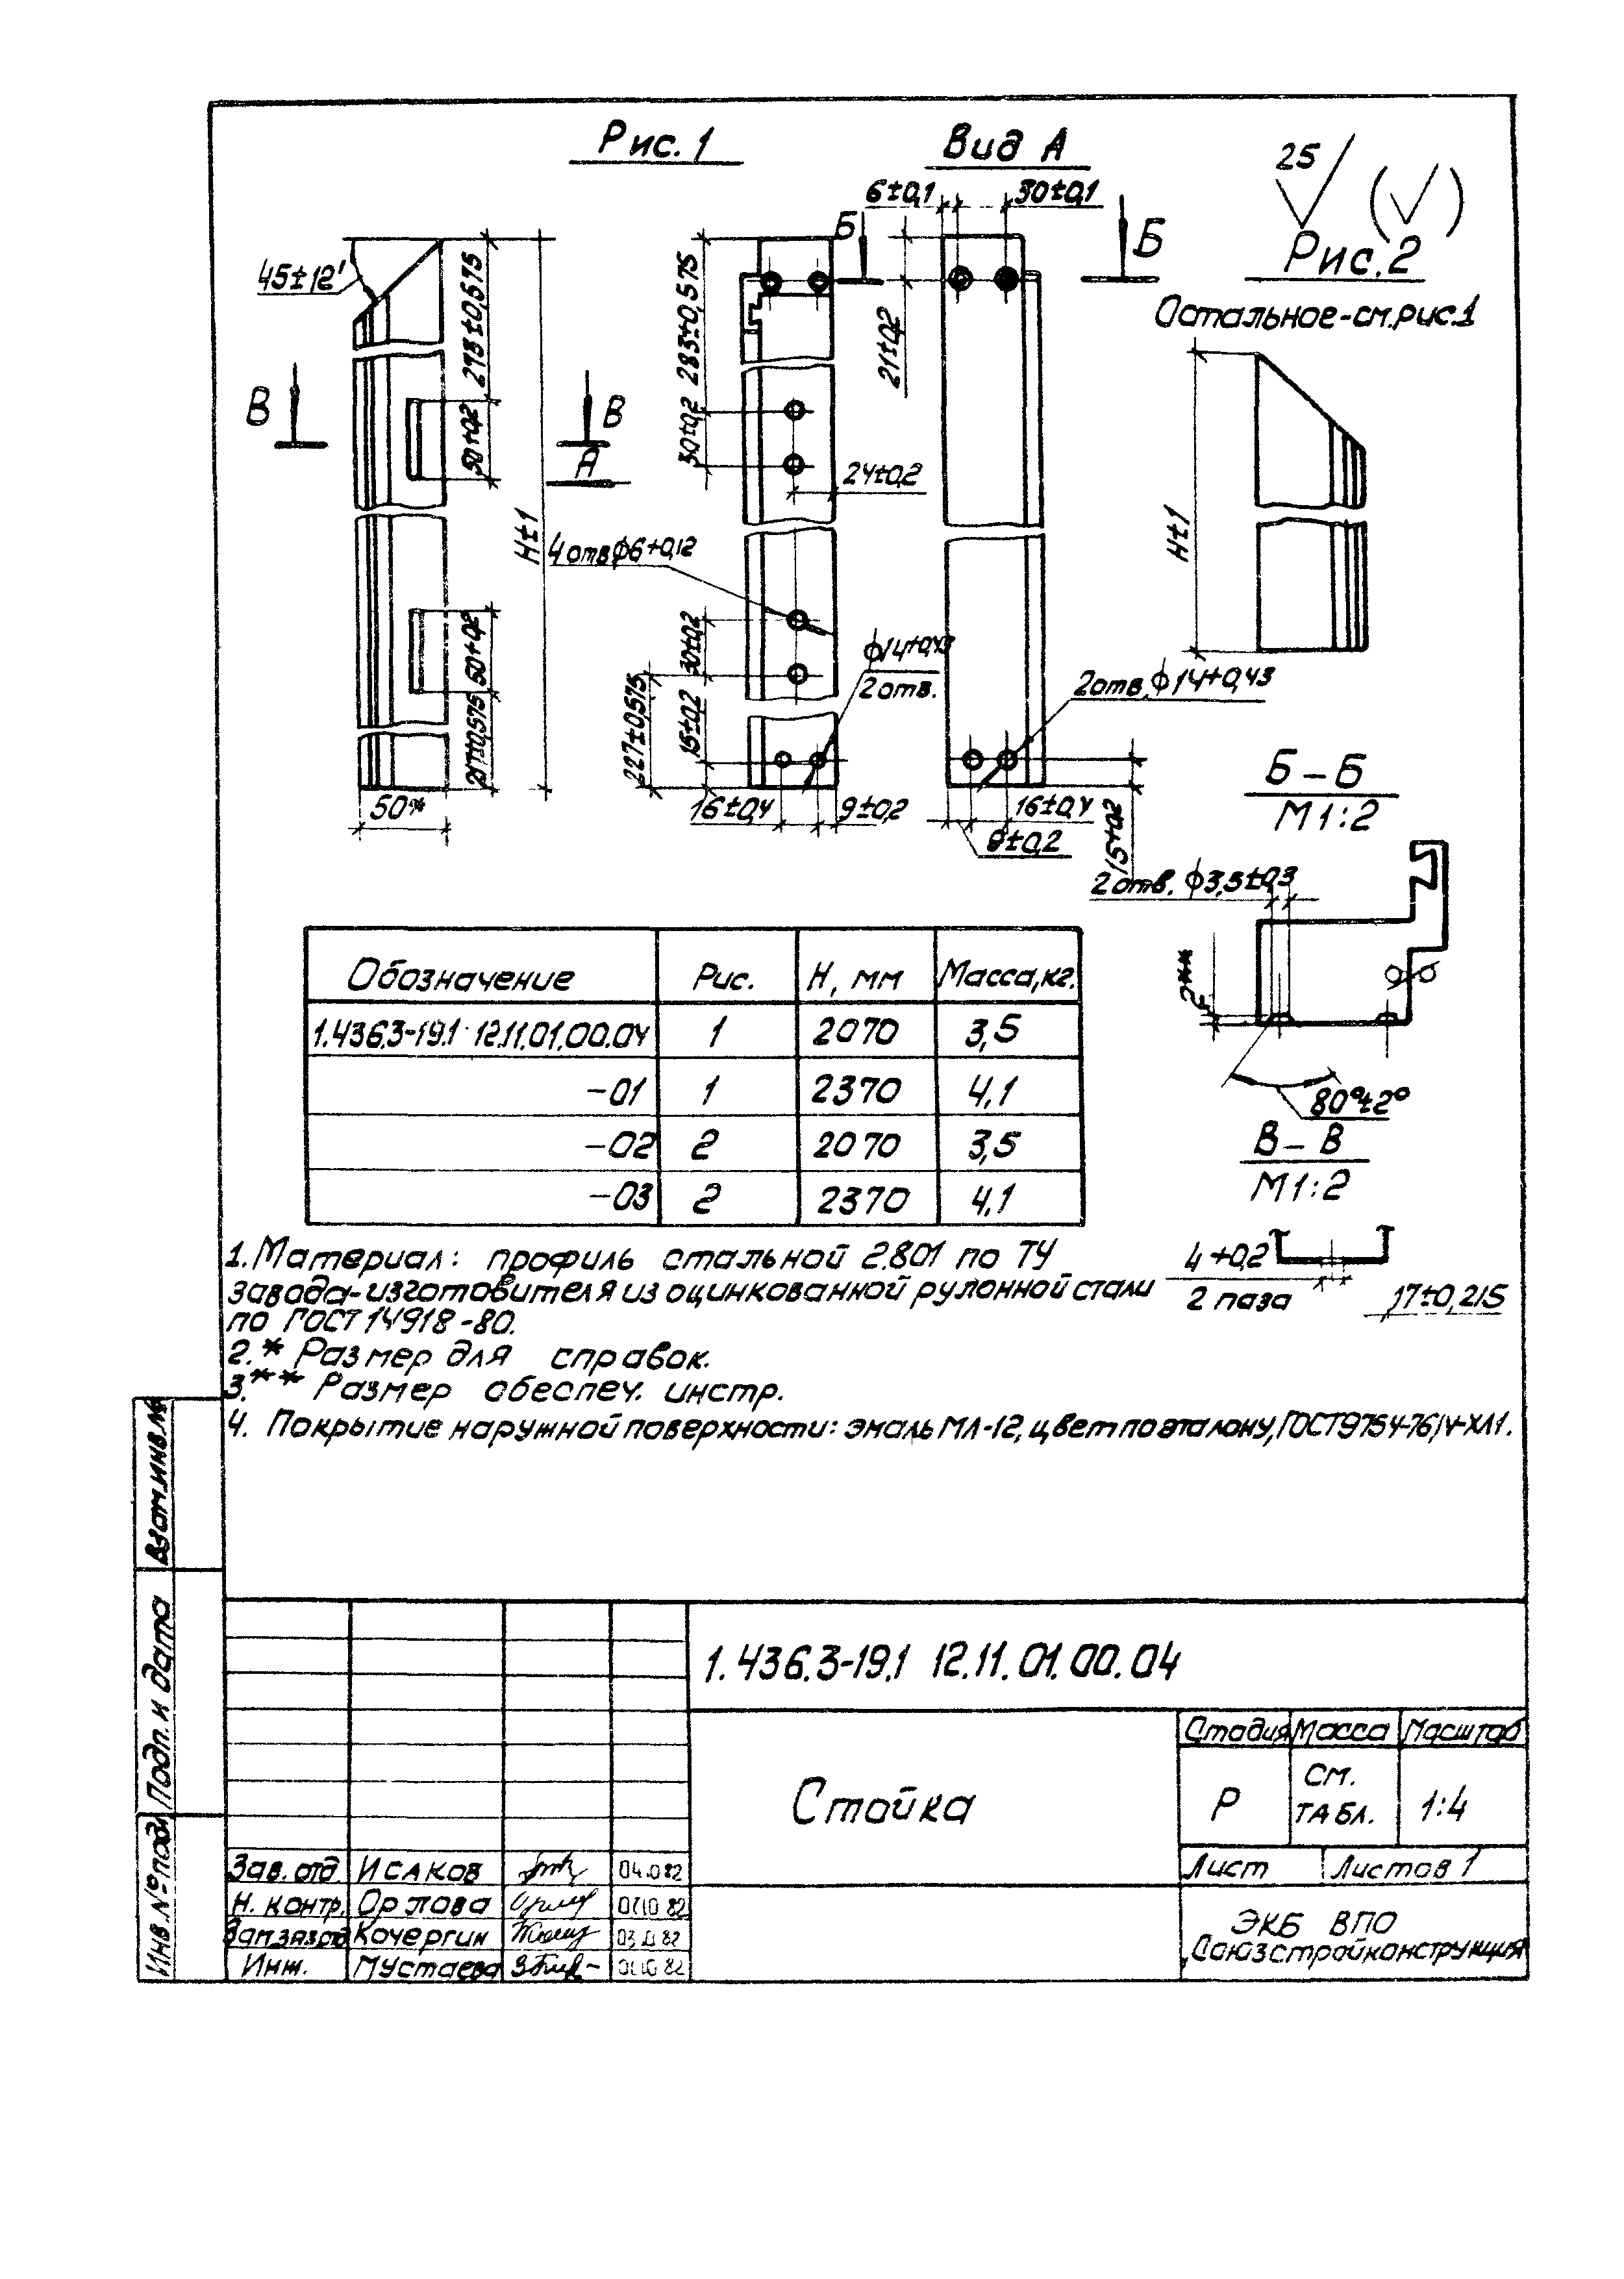 Рис. 1
Вид А
25
Рис. 2
Остальное-см.рис.1
6±0,1
30±0,1
Б
Б
45±12'
273±0,575
283±0,575
21±0,2
В
В
А
50+0,2
30±0,2
24±0,2
Н±1
Н±1
4 отв ф6+0,12
50+0,2
30±0,2
ф14+0,43
2 отв.
2 отв. ф14+0,43
217±0,575
227±0,575
15±0,2
50*
16±0,4
9±0,2
16±0,4
9±0,2
15±0,2
Б – Б
М 1:2
2 отв. ф3,5±0,3
2**
80°±2°
В – В
М 1:2
4+0,2
2 паза
17±0,215
Обозначение Рис. Н, мм Масса,кг.
1.436.3-19.1 12.11.01.00.04 1 2070 3,5
-01 1 2370 4,1
-02 2 2070 3,5
-03 2 2370 4,1
1. Материал: профиль стальной 2.801 по ТУ
завода-изготовителя из оцинкованной рулонной стали
по ГОСТ 14918-80.
2.* Размер для справок.
3.** Размер обеспеч. инстр.
4. Покрытие наружной поверхности: эмаль МЛ-12, цвет по эталону, ГОСТ 9754-76, IV-ХЛ1.
Взам.инв.№
Подп. и дата
Инв.№подл
1.436.3-19.1 12.11.01.00.04
Стойка
Стадия Масса Масштаб
Р См. табл. 1:4
Лист Листов 1
ЭКБ ВПО
"Союзстройконструкция"
Зав. отд. Исаков
Н. контр. Орлова
Кочергин
Инж. Мустаева